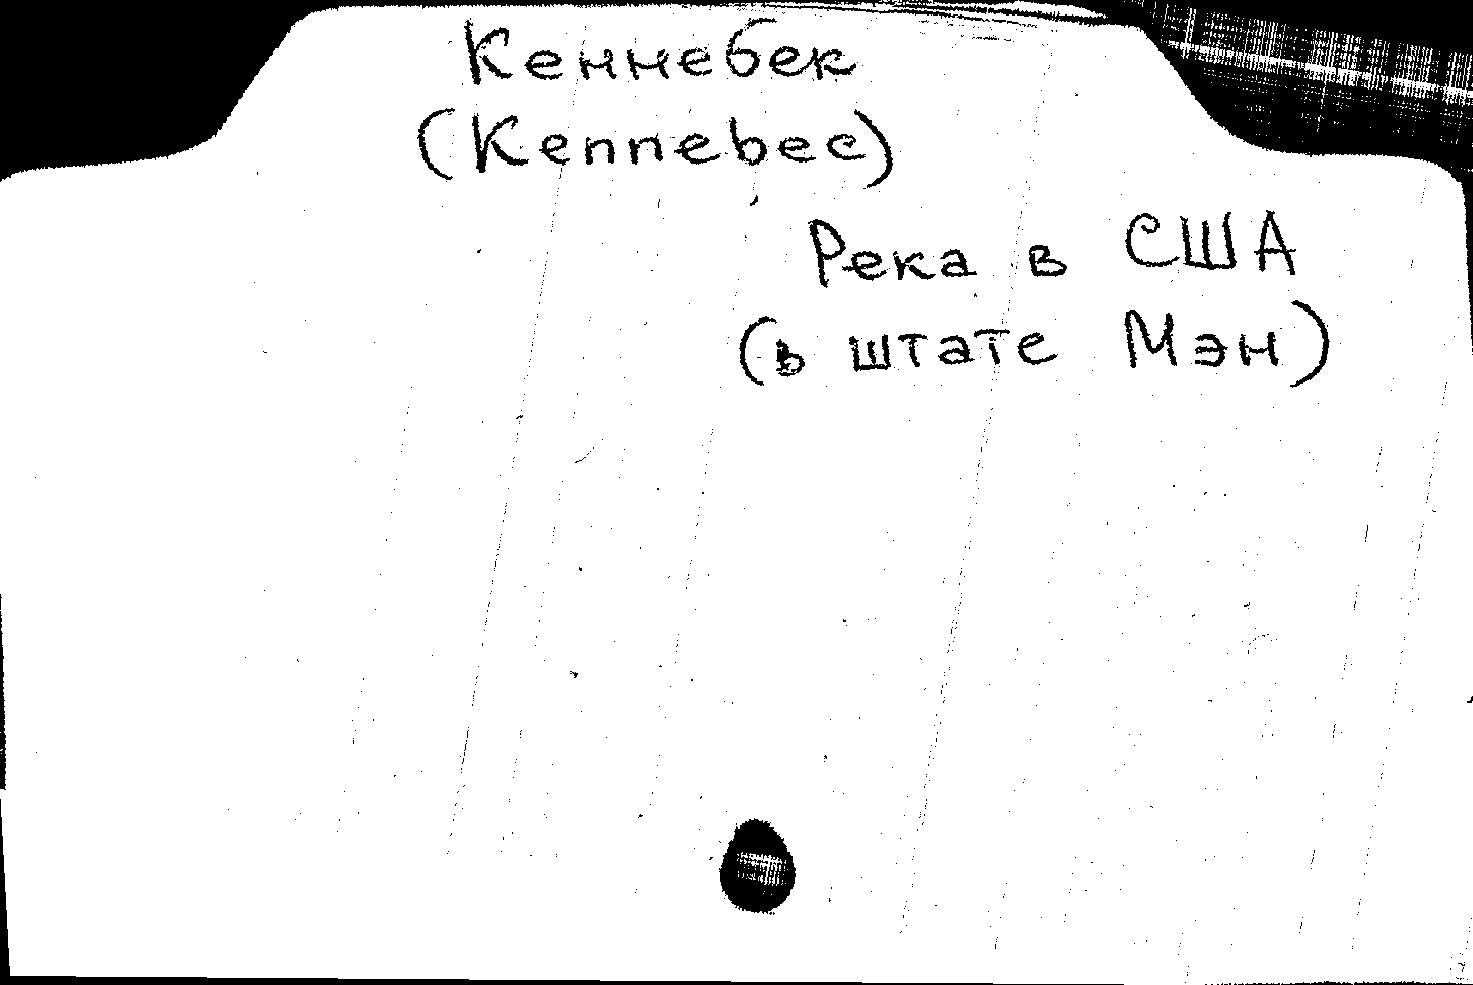 Кеннебек
(Kennebec)
Река в США
(в штате Мэн)